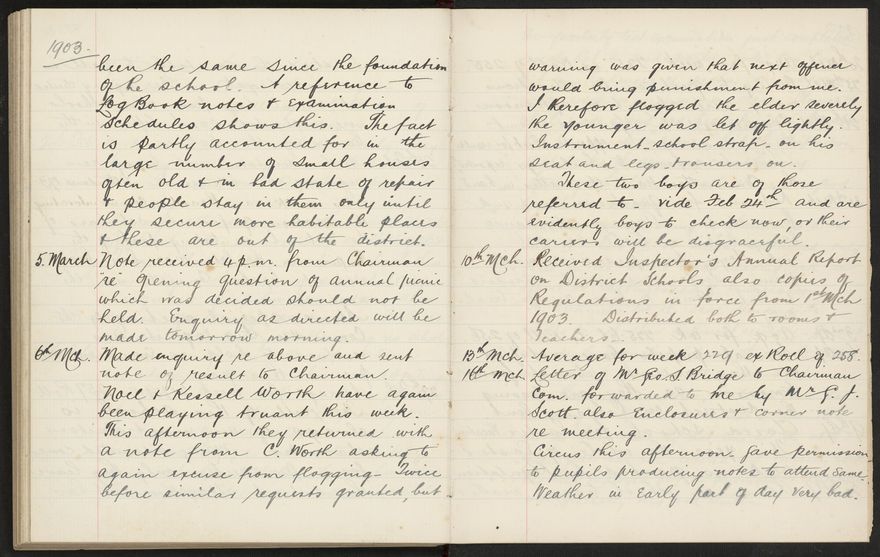 1903.
been the same since the foundation
of the school. A reference to
Log Book notes & Examination
Schedules shows this. The fact
is partly accounted for in the
large number of small houses
often old & in bad state of repair
& people stay in them only until
they secure more habitable places
& these are out of the district.
5. March Note received 4 p.m. from Chairman
re opening question of annual picnic
which was decided should not be
held. Enquiry as directed will be
made tomorrow morning.
6th Mch. Made enquiry re above and sent
note of result to Chairman.
Noel & Kessell Worth have again
been playing truant this week.
This afternoon they returned with
a note from C. Worth asking to
again excuse from flogging - Twice
before similar requests granted, but
warning was given that next offence
would bring punishment from me.
I therefore flogged the elder severely
the younger was let off lightly.
Instrument. school strap. on his
seat and legs. trousers on.
These two boys are of those
referred to - vide Feb 24th and are
evidently boys to check now, or their
careers will be disgraceful.
10th Mch. Received Inspector's Annual Report
on District Schools also copies of
Regulations in force from 1st Mch
1903. Distributed both to rooms &
Teachers.
13th Mch. Average for week 229 ex Roll of 258.
16th Mch Letter of Mr Geo. S. Bridge to Chairman
Com. forwarded to me by Mr G. J.
Scott also Enclosures & corner note
re meeting.
Circus this afternoon. Gave permission
to pupils producing notes to attend same.
Weather in Early part of day very bad.